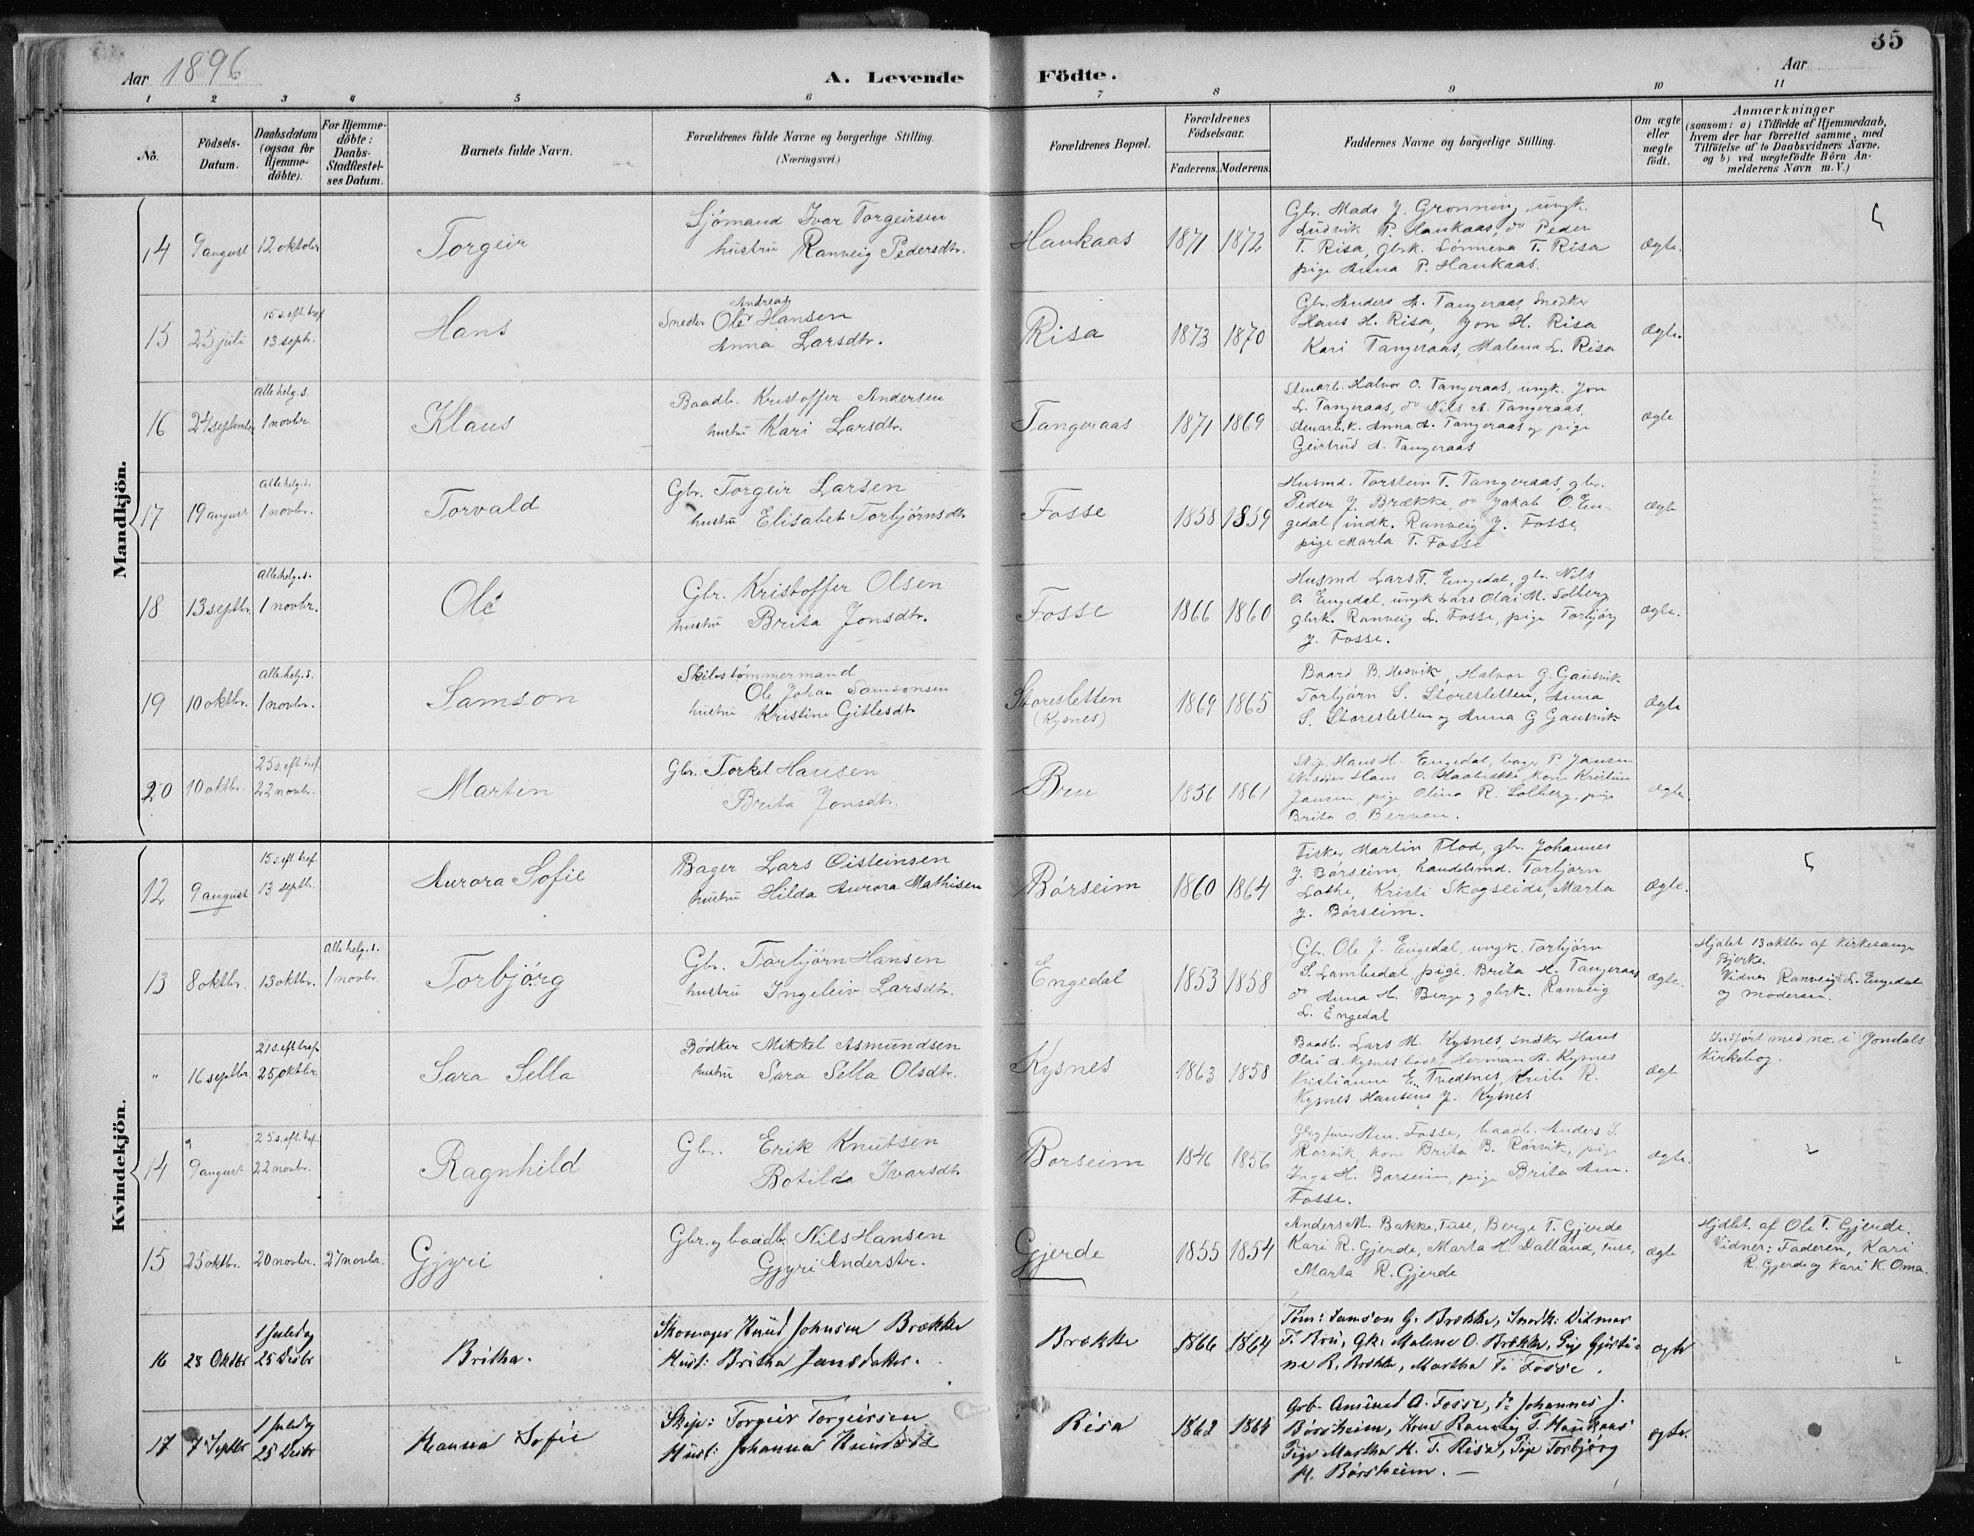 Aar 1896
A. Levende Födte.
Aar
35
1 2 3 4 5 6 7 8 9 10 11
No.
Födsels-Datum.
Daabsdatum (ogsaa for Hjemme-döbte).
For Hjemme-döbte: Daabs-Stadfæstel-ses Datum.
Barnets fulde Navn.
Forældrenes fulde Navne og borgerlige Stilling. (Næringsvei.)
Forældrenes Bopæl.
Forældrenes Födselsaar.
Faderens. Moderens.
Faddernes Navne og borgerlige Stilling.
Om ægte eller uægte födt.
Anmærkninger
(saasom: a) i Tilfælde af Hjemmedaab, hvem der har forrettet samme, med Tilföielse af to Daabsvidners Navne. og b) ved uægtefödte Börn An-melderens Navn m. V.)
Mandkjön.
14 9 august 12 oktober Torgeir
Sjømand Ivar Torgeirsen
hustru Ranveig Pedersdtr.
Haukaas 1871 1872
Gbr. Mads J. Grønning, ungk.
Ludvik P. Haukaas, do Peder
T. Risa, gbrk. Lønneva T. Risa
pige Anna P. Haukaas.
ægte.
15 25 juli 15 s. eft. tref. 13 septr. Hans
Andreas
Snedker Ole Hansen
Anna Larsdtr.
Risa 1873 1870
Gbr. Anders A. Tangeraas, Snedker
Hans H. Risa, Jon H. Risa
Kari Tangeraas, Malena L. Risa
ægte.
16 24 september Alle helg. s. 1 novbr Klaus
Baadb. Kristoffer Andersen
hustru Kari Larsdtr.
Tangeraas 1871 1869
Stenarb. Halvor O. Tangeraas, ungk. Jon
L. Tangeraas, do Nils A. Tangeraas,
Stenarb.k. Anna A. Tangeraas og pige
Geirtrud A. Tangeraas
ægte
17 19 august Alle helg. s. 1 novbr. Torvald
Gbr. Torgeir Larsen
hustru Elisabet Torbjørnsdtr
Fosse 1858 1859
Husmd. Torstein T. Tangeraas, gbr.
Peder J. Brække, do Jakob O. En-
gedal, indk. Ranveig J. Fosse,
pige Marta T. Fosse
ægte
18 13 septbr. Alle helg. s. 1 novbr. Ole
Gbr. Kristoffer Olsen
hustru Brita Jonsdtr.
Fosse 1866 1860
Husmd Lars T. Engedal, gbr. Nils
O. Engedal, ungk Lars Olai M. Solberg
gbrk. Ranveig L. Fosse, pige Torbjørg
J. Fosse.
ægte.
19 10 oktbr. Alle helg. s. 1 novbr. Samson
Skibstømmermand
Ole Johan Samsonsen
hustru Kristine Gitlesdtr
Storesletten (Kysnes) 1869 1865
Baard B. Nesvik, Halvor G. Gausvik
Torbjørn S. Storesletten, Anna
S. Storesletten og Anna G Gausvik
ægte
20 10 oktbr. 25 s. eft. tref. 22 novbr. Martin
Gbr. Torkel Hansen
Brita Jonsdtr.
Bru 1856 1861
Skip. Hans H. Engedal, bager P. Jansen
Hans O. kone Kristine
Jansen, pige Olina R. Solberg, pige
Brita O. Berven.
ægte.
Kvindekjön.
12 9 august 15 s. eft tref. 13 septbr. Aurora Sofie
Bager Lars Øisteinsen
hustru Hilda Aurora Mathisen
Børseim 1860 1864
Fisker Martin Flod, gbr. Johannes
J. Børseim, handelsmd. Torbjørn
Lothe, Kristi Skogseide, Marta
J. Børseim.
ægte.
13 8 oktbr. 13 oktbr. Alle helg. s. 1 novbr. Torbjørg
Gbr. Torbjørn Hansen
hustru Ingeleiv Larsdtr.
Engedal 1853 1858
Gbr. Ole J. Engedal, ungk. Torbjørn
S. Lambedal, pige Brita H. Tangeraas
do Anna H. Berge og gbrk. Ranveig
L. Engedal
ægte.
Hjdbt 13 oktbr af kirkesanger
Bjerke.
Vidner Ranveig L. Engedal
og moderen.
" 16 septbr. 21 s. eft tref 25 oktbr Sara Sella
Bødker Mikkel Asmundsen
hustru Sara Sella Olsdtr.
Kysnes 1863 1858
Baadb. Lars M. Kysnes, snedker Hans
Olai A. Kysnes, Herman A. Kysnes
Kristianne E. Tvedtnes, Kristi R.
Kysnes Hansine J. Kysnes
ægte
Indført med no. i Jondals
Kirkebog.
14 9 august 25 s. eft. tref. 22 novbr. Ragnhild
Gbr. Erik Knutsen
Botilda Ivarsdtr.
Børseim 1846 1856
Am. Fosse, baadb. Anders I.
Rørvik kone Brita B. Rørvik, pige
Inga H. Børseim, pige Brita Am.
Fosse.
ægte.
15 25 oktbr. 20 novbr. 27 novbr. Gjyri
Gbr. og baadb. Nils Hansen
Gjyri Anderstr.
Gjerde 1855 1854
Anders M. Bakke, Fuse, Berge T. Gjerde
Kari R. Gjerde, Marta H. Dalland, Fuse,
Marta R. Gjerde
ægte
Hjdbt. af Ole T. Gjerde.
Vidner: Faderen, Kari
R. Gjerde og Kari K. Oma.
16 28 Oktbr 1 Juledag 25 Desbr Britha.
Skomager Knud Johnsen Brække
Hust: Britha Jansdatter.
Brække 1866 1864
Tøm: Samson G. Brække, Snedk: Ditmar
T. Bru, Gk. Malene O. Brække, Pige Gjørti-
ne R. Brække, Martha T. Fosse.
ægte
17 7 Septbr 1 Juledag 25 Desbr Hanna Sofie
Skip: Torgeir Torgeirsen
Hust: Johanna Knutsdtr
Risa 1862 1865
Grb. Amund A. Fosse, do Johannes J.
Børsheim, Kone Ranveig T. Haukaas
Pige Martha H. T. Risa, Pige Torbjørg
H. Børsheim. —
ægte.